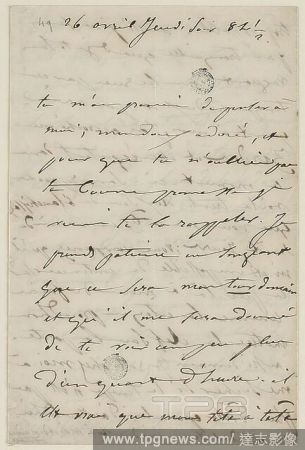 49
26 avril Jeudi Soir 8h ½
tu m'as promis de penser à
moi, mon doux adoré, et
pour que tu n'oublies pas
ta bonne promesse je
viens te la rappeler. Je
prends patience en songeant
que ce sera mon tour demain
et qu'il me sera donné
de te voir un peu plus
d'un quart d'heure. il
est vrai que mon tête à tête
TPG
www.tpgnews.com/達志影像